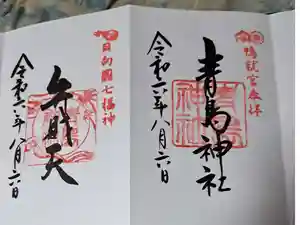 鴨就宮参拝
青島神社
令和六年八月六日
日向國七福神
弁財天
令和六年八月六日